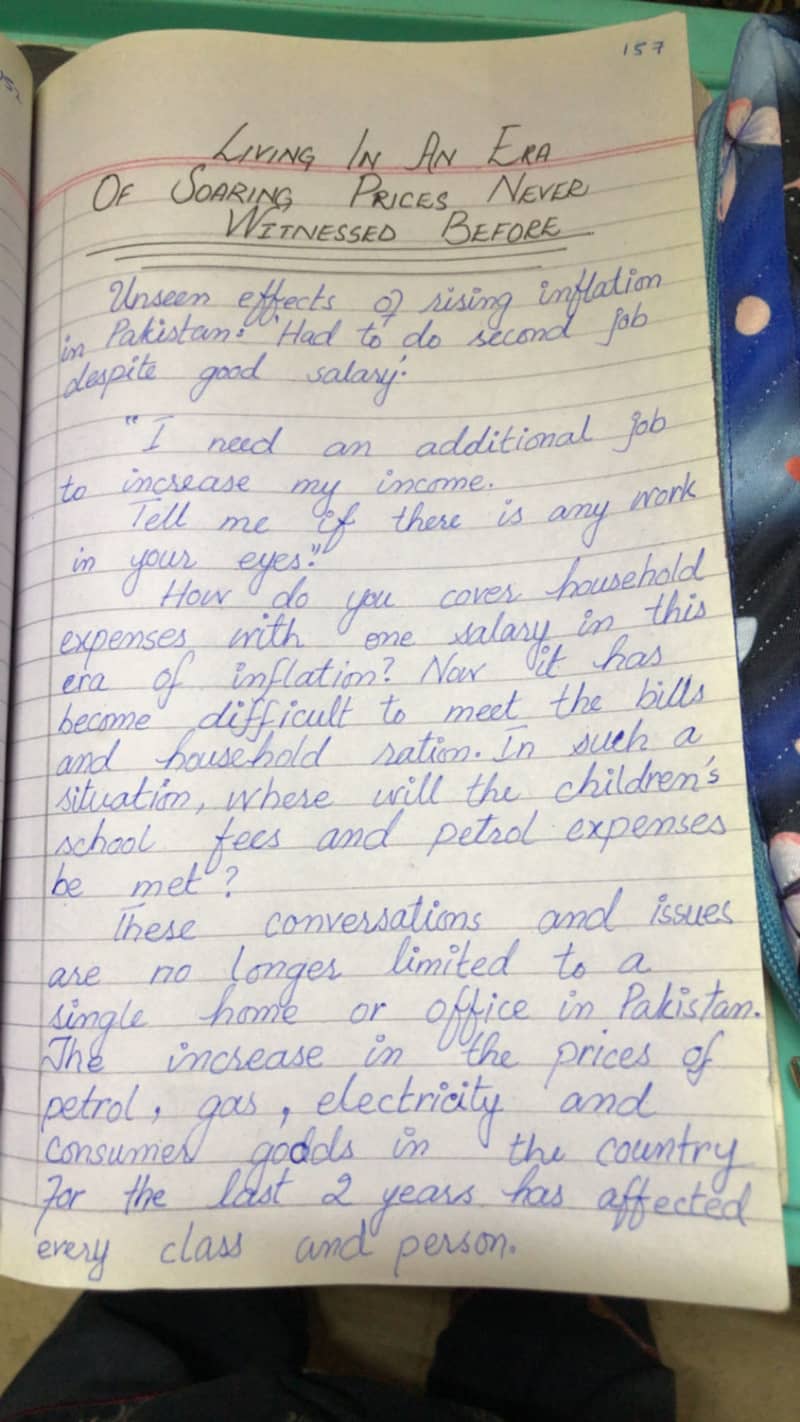 157
LIVING IN AN ERA
OF SOARING PRICES NEVER
WITNESSED BEFORE
Unseen effects of rising inflation
in Pakistan: 'Had to do second job
despite good salary'.
"I need an additional job
to increase my income.
Tell me if there is any work
in your eyes."
How do you cover household
expenses with one salary in this
era of inflation? Now it has
become difficult to meet the bills
and household ration. In such a
situation, where will the children's
school fees and petrol expenses
be met?
These conversations and issues
are no longer limited to a
single home or office in Pakistan.
The increase in the prices of
petrol, gas, electricity and
consumer goods in the country
for the last 2 years has affected
every class and person.